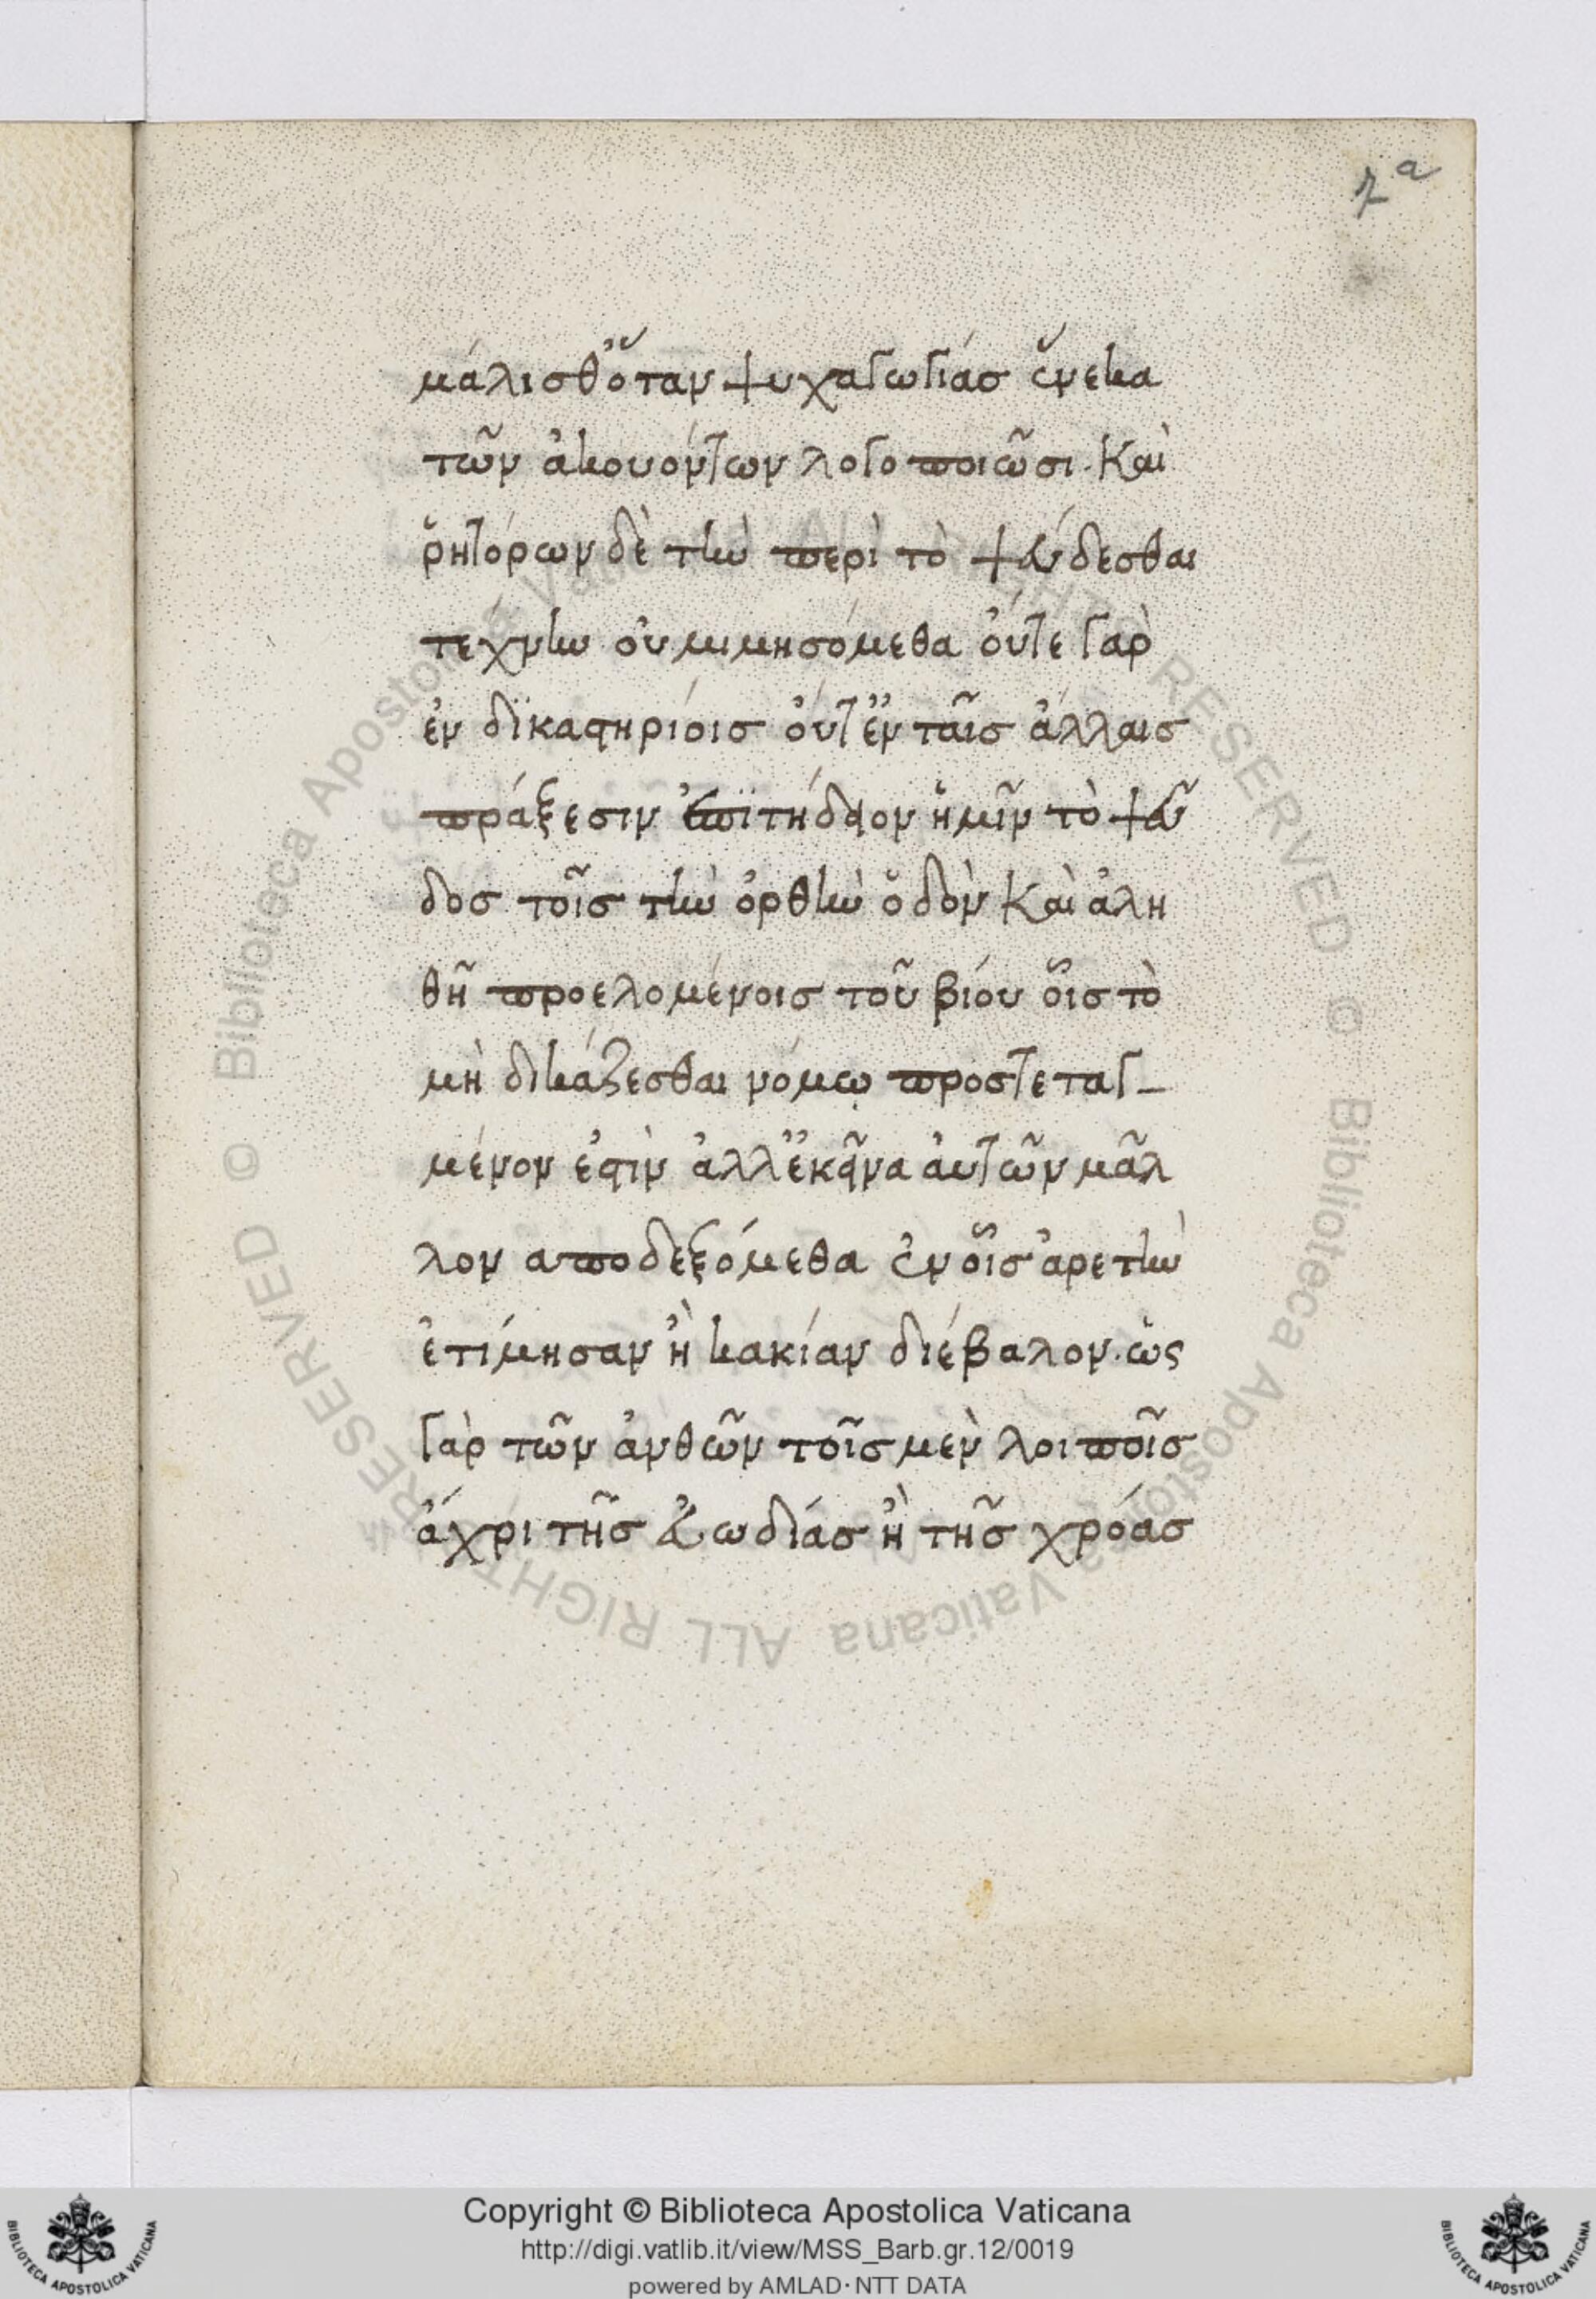 7ª
μάλισθ' ὅταν ψυχαγωγίας ἕνεκα
τῶν ἀκουόντων λογοποιῶσι. Καὶ
ῥητόρων δὲ τὴν περὶ τὸ ψεύδεσθαι
τέχνην οὐ μιμησόμεθα οὔτε γὰρ
ἐν δϊκαστηρίοις οὔτ' ἐν ταῖς ἄλλαις
πράξεσιν ἐπϊτήδειον ἡμῖν τὸ ψεῦ
δος τοῖς τὴν ὀρθὴν ὁδὸν Καὶ ἀλη
θῆ προελομένοις τοῦ βίου οἷς τὸ
μὴ δικάζεσθαι νόμῳ προστεταγ-
μένον ἐστὶν ἀλλ' ἐκεῖνα αὐτῶν μᾶλ
λον αποδεξόμεθα ἐν οἷς ἀρετὴν
ἐτίμησαν ἢ κακίαν διέβαλον. ὡς
γὰρ τῶν ἀνθῶν τοῖς μὲν λοιποῖς
ἄχρι τῆς εὐωδίας ἢ τῆς χρόας
Copyright © Biblioteca Apostolica Vaticana
http://digi.vatlib.it/view/MSS_Barb.gr.12/0019
powered by AMLAD·NTT DATA